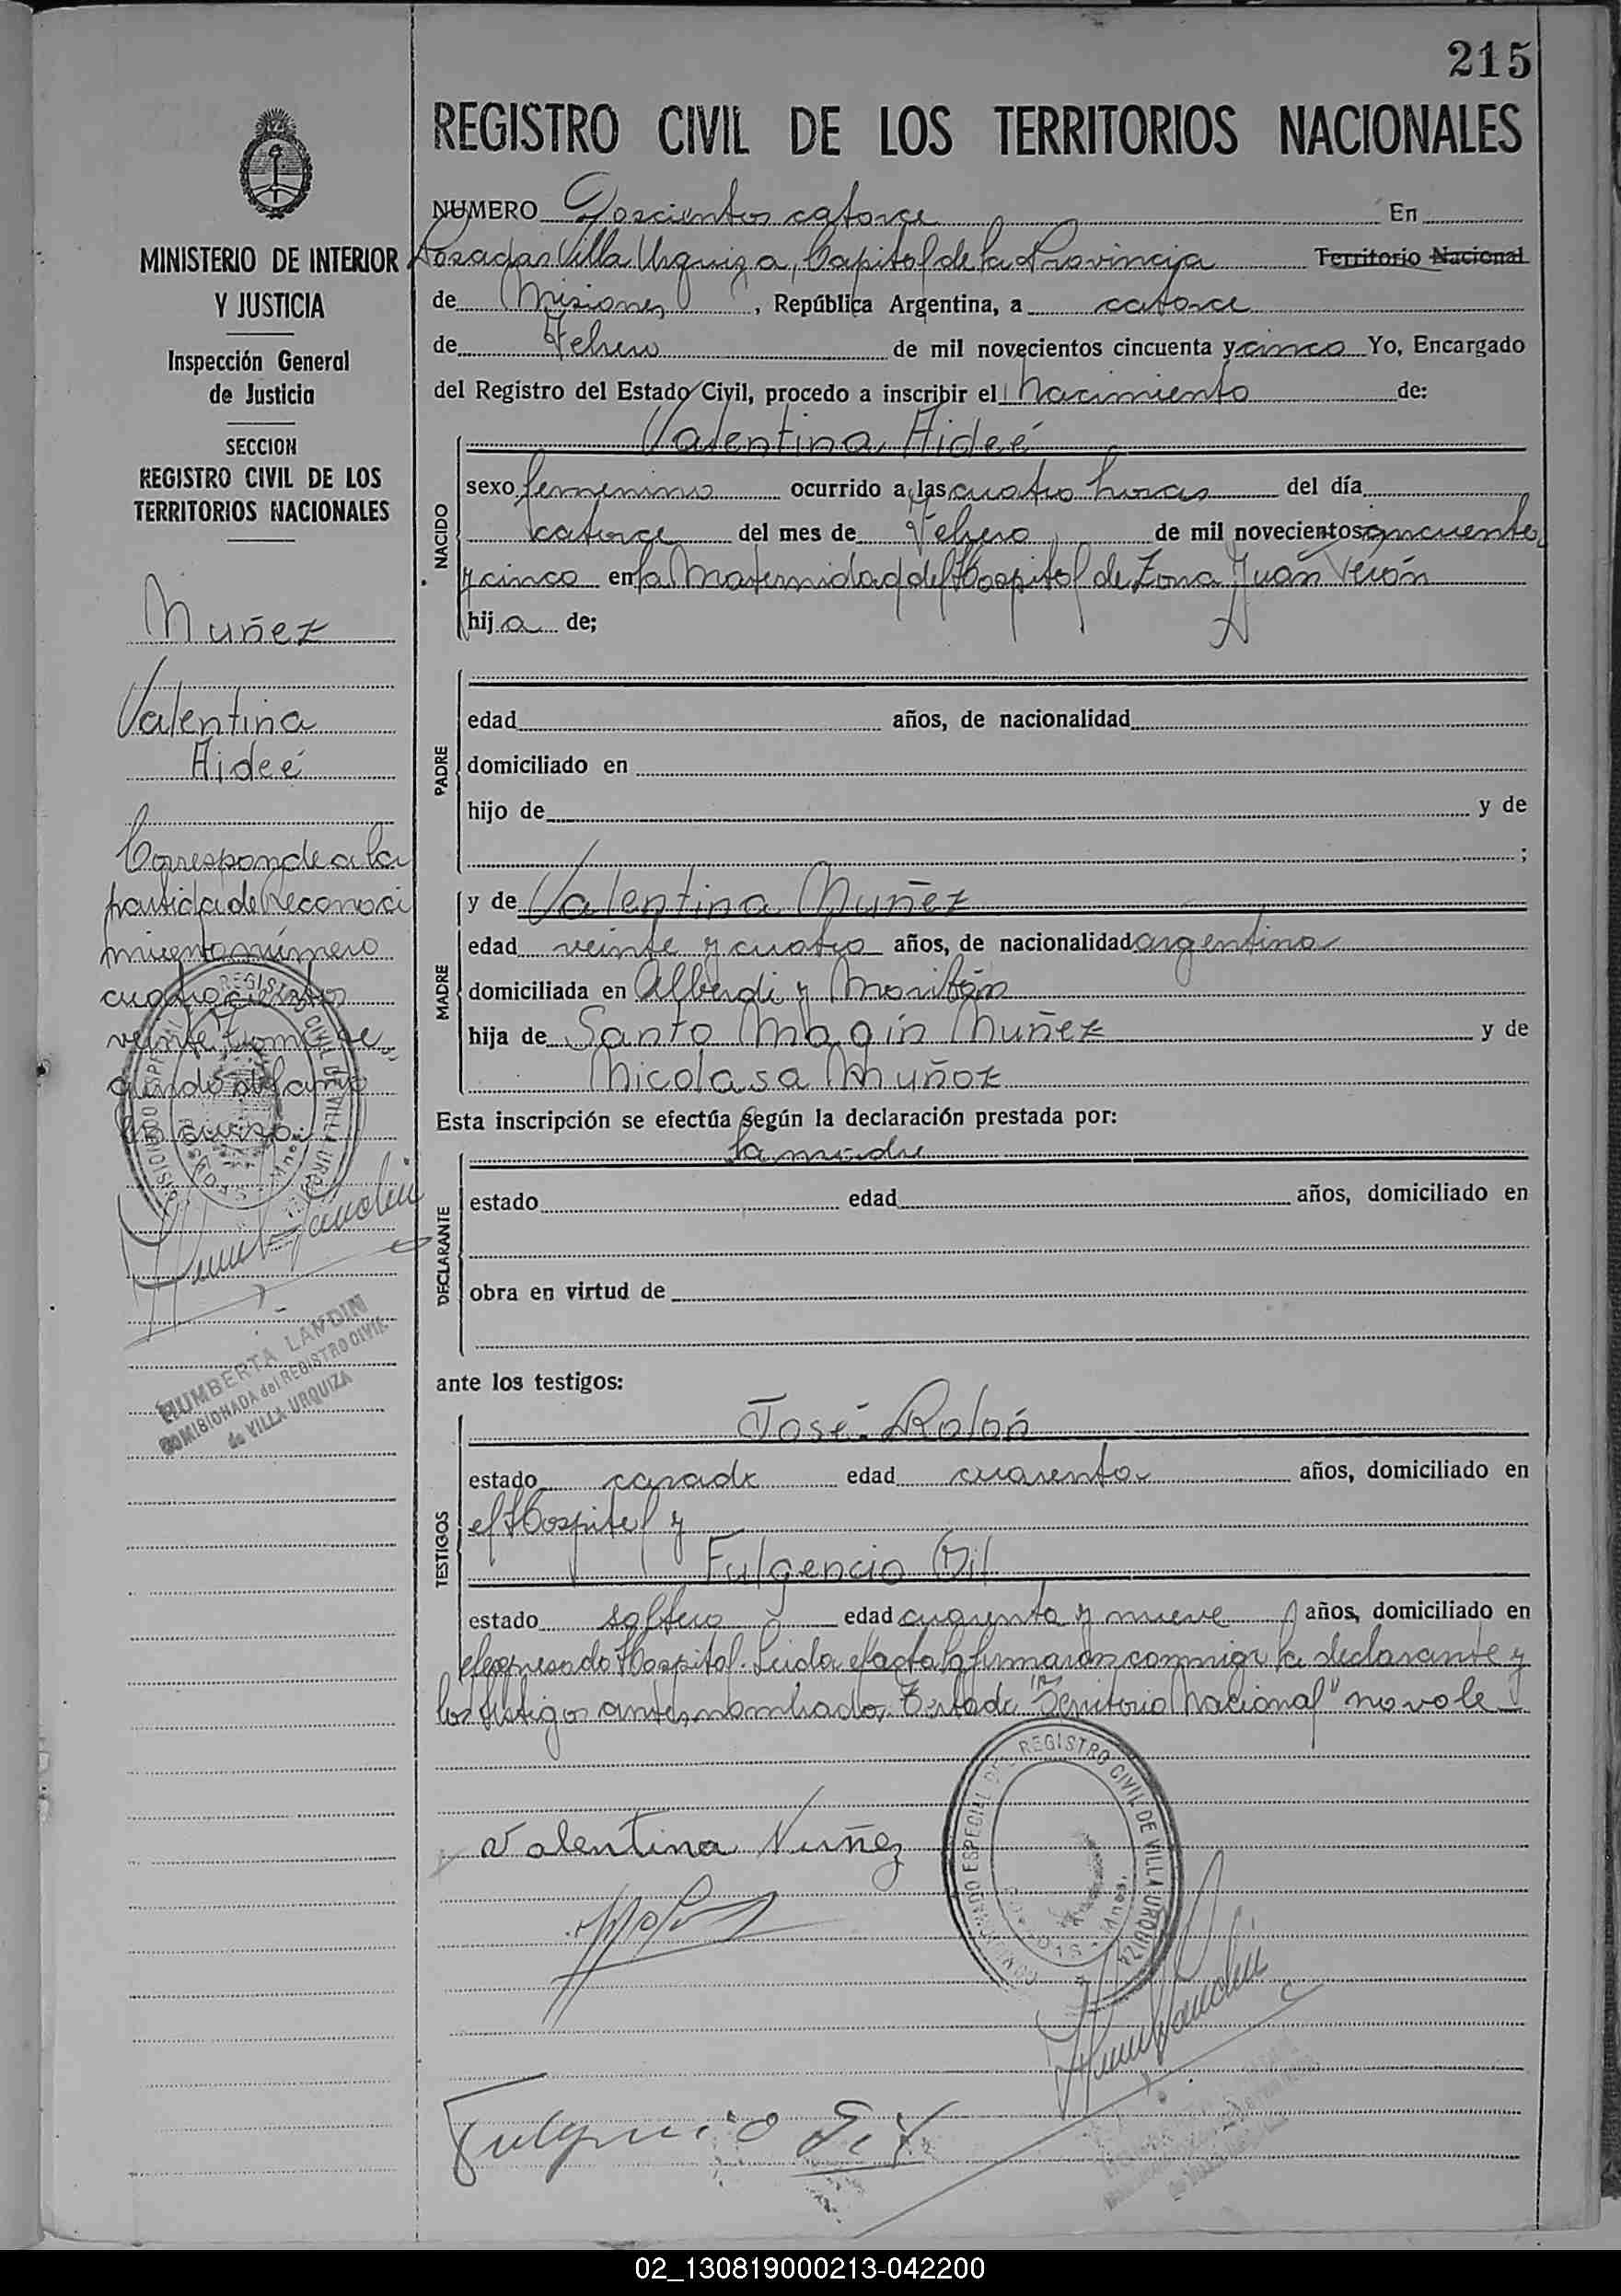 215
REGISTRO CIVIL DE LOS TERRITORIOS NACIONALES
NUMERO Doscientos catorce En
Posadas Villa Urquiza, Capital de la Provincia Territorio Nacional
de Misiones, República Argentina, a catorce
de Febrero de mil novecientos cincuenta y cinco Yo, Encargado
del Registro del Estado Civil, procedo a inscribir el Nacimiento de:
Valentina Aideé
NACIDO
sexo femenino ocurrido a las cuatro horas del día
catorce del mes de Febrero de mil novecientos cincuenta
y cinco en la Maternidad del Hospital de Zona Juan Verón
hija de;
PADRE
edad años, de nacionalidad
domiciliado en
hijo de y de
;
MADRE
y de Valentina Nuñez
edad veinte y cuatro años, de nacionalidad argentina
domiciliada en Alberdi y
hija de Santo Magín Nuñez y de
Nicolasa Muñoz
Esta inscripción se efectúa según la declaración prestada por:
la madre
DECLARANTE
estado edad años, domiciliado en
obra en virtud de
ante los testigos:
TESTIGOS
José Rolón
estado casado edad cuarenta años, domiciliado en
el Hospital y
Fulgencio Gil
estado soltero edad cuarenta y nueve años, domiciliado en
el expresado Hospital. Leida el acta la firmaron conmigo la declarante y
los testigos antes nombrados. Testado "Territorio Nacional" no vale
Valentina Nuñez
Fulgencio Gil
REGISTRO CIVIL DE VILLA URQUIZA
MINISTERIO DE INTERIOR
Y JUSTICIA
Inspección General
de Justicia
SECCION
REGISTRO CIVIL DE LOS
TERRITORIOS NACIONALES
Nuñez
Valentina
Aideé
Corresponde a la
partida de Reconoci
miento número
cuatrocientos
veinte tomo se
gundo del año
en curso.
REGISTRO CIVIL DE VILLA URQUIZA
HUMBERTA LANDIN
COMISIONADA del REGISTRO CIVIL
de VILLA URQUIZA
02_130819000213-042200